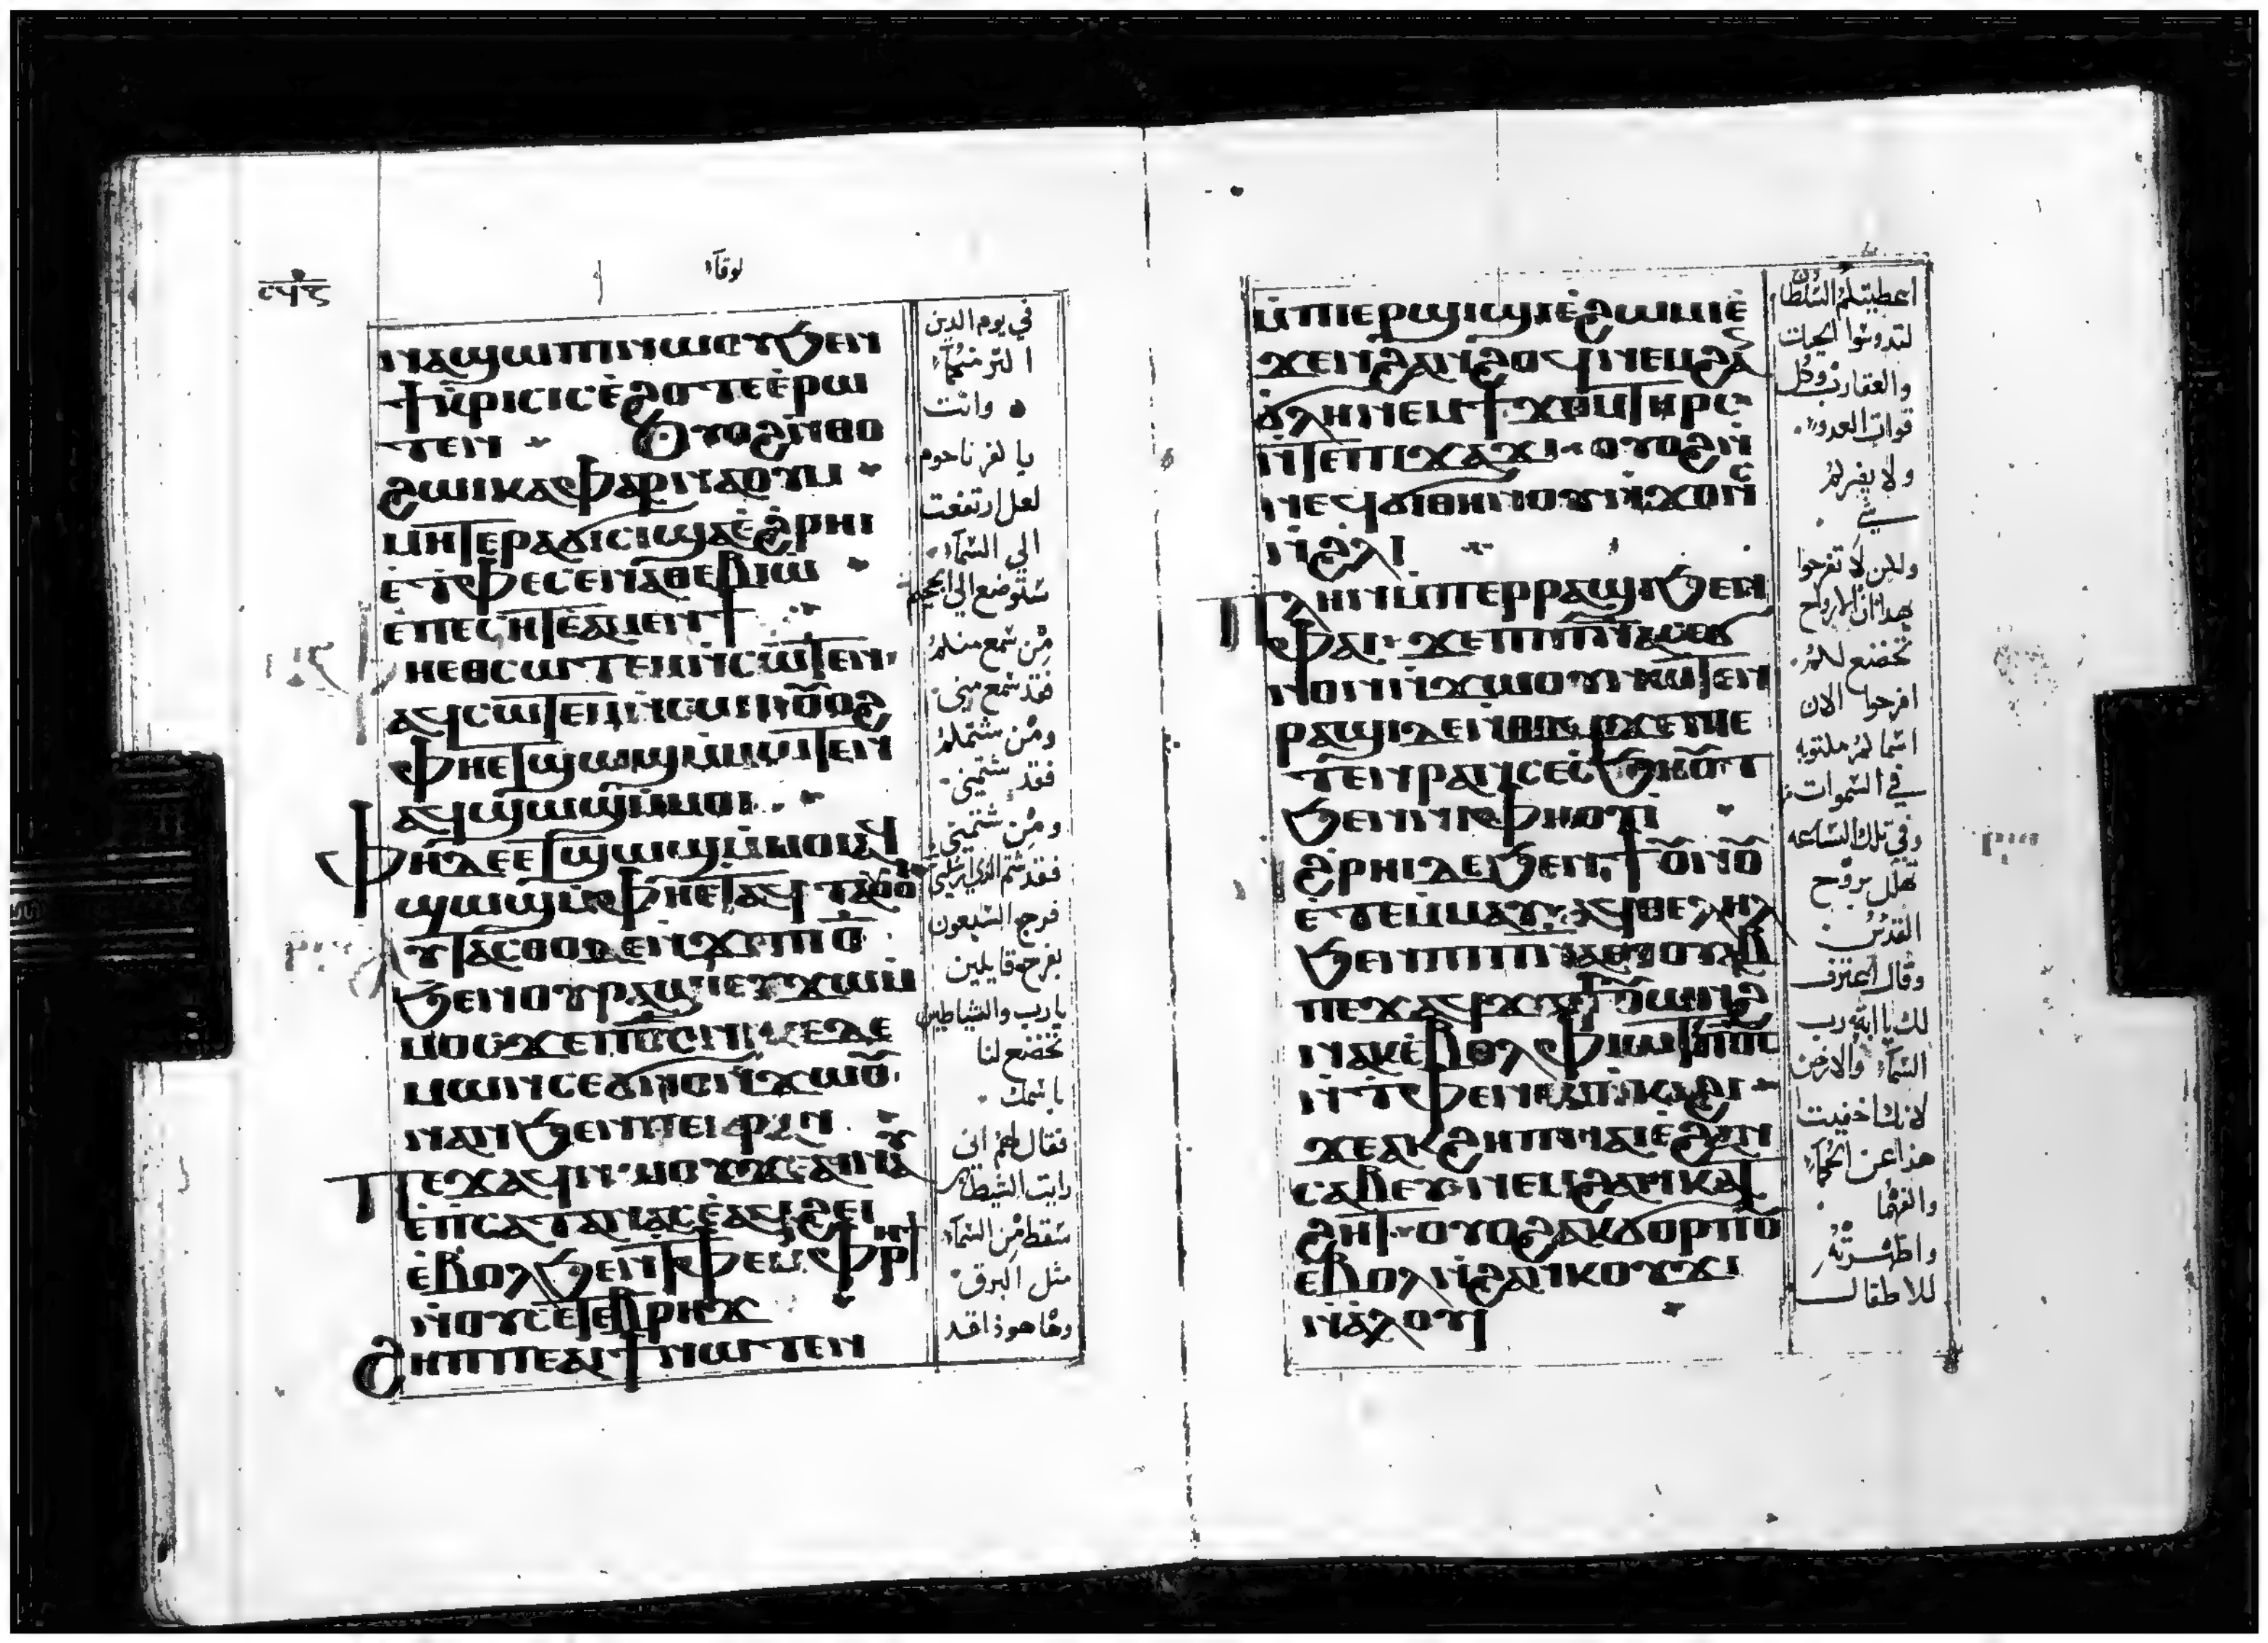 لوقا
ⲛⲁϣⲱⲡⲓⲛⲱⲟⲩϧⲉⲛ
ϯⲕⲣⲓⲥⲓⲥⲉ̀ϩⲟⲧⲉⲉ̀ⲣⲱ
ⲧⲉⲛ ⲟⲩⲟϩⲛ̀ⲑⲟ
ϩⲱⲓⲕⲁⲫⲁⲣⲛⲁⲟⲩⲙ
ⲙⲏⲧⲉⲣⲁϭⲓⲥⲓϣⲁⲉ̀ϩⲣⲏⲓ
ⲉ̀ⲧⲫⲉⲥⲉⲛⲁⲑⲉⲃⲓⲱ
ⲉ̀ⲡⲉⲥⲏⲧⲉ̀ⲁⲙⲉⲛϯ
ⲫⲏⲉⲑⲥⲱⲧⲉⲙⲛ̀ⲥⲱⲧⲉⲛ
ⲁϥⲥⲱⲧⲉⲙⲛ̀ⲥⲱⲓⲟⲩⲟϩ
ⲫⲏⲉⲧϣⲱϣϥⲙ̀ⲙⲱⲧⲉⲛ
ⲁϥϣⲱϣϥⲙ̀ⲙⲟⲓ
ⲫⲏⲇⲉⲉⲧϣⲱϣϥⲙ̀ⲙⲟⲓⲁϥ
ϣⲱϣϥⲙ̀ⲫⲏⲉⲧⲁϥⲧⲁⲟⲩⲟ
ⲩⲧⲁⲥⲑⲟⲇⲉⲛ̀ϫⲉⲡⲓⲟ̅
ϧⲉⲛⲟⲩⲣⲁϣⲓⲉⲩϫⲱⲙ̀
ⲙⲟⲥϫⲉⲡⲟ̅ⲥ̅ⲛⲓⲕⲉⲇⲉ
ⲙⲱⲛⲥⲉϭⲛⲟⲛ̀ϫⲱⲟⲩ
ⲛⲁⲛϧⲉⲛⲡⲉⲕⲣⲁⲛ
ⲡⲉϫⲁϥⲛⲱⲟⲩϫⲉⲁⲓⲛⲁⲩ
ⲉ̀ⲡⲥⲁⲧⲁⲛⲁⲥⲉ̀ⲁϥϩⲉⲓ
ⲉ̀ⲃⲟⲗϧⲉⲛⲧⲫⲉⲙ̀ⲫⲣⲏϯ
ⲛ̀ⲟⲩⲥⲉⲧⲉⲃⲣⲏϫ
ϩⲏⲡⲡⲉⲁⲓϯⲛⲱⲧⲉⲛ
في يوم الدين
اكثر منكما
وانت
يا كفرناحوم
لعل ارتفعت
الي السماء
ستوضع الي الجحيم
من سمع منكم
فقد سمع مني
ومن شتمكم
فقد شتمني
ومن شتمني
فقد شتم الذي ارسلني
فرجع السبعون
بفرح قايلين
يارب والشياطين
تخضع لنا
باسمك
فقال لهم اني
رايت الشيطان
سقط من السماء
مثل البرق
وها هوذا قد
ⲙ̀ⲡⲓⲉⲣϣⲓϣⲓⲉ̀ϩⲱⲙⲓⲉ̀
ϫⲉⲛϩⲁⲛϩⲟϥⲛⲉⲙϩⲁⲛ
ϭⲗⲏⲛⲉⲙϯϫⲟⲙⲧⲏⲣⲥ
ⲛ̀ⲧⲉⲡⲓϫⲁϫⲓⲟⲩⲟϩⲛ̀
ⲛⲉϥϭⲓⲑⲏⲛⲟⲩⲛ̀ϫⲟⲛⲥ
ⲛ̀ϩⲗⲓ
ⲡⲗⲏⲛⲙ̀ⲡⲉⲣⲣⲁϣⲓϧⲉⲛ
ⲫⲁⲓϫⲉⲛⲓⲡⲛ̅ⲁ̅ⲥⲉϭ
ⲛⲟⲛⲛ̀ϫⲱⲟⲩⲛⲱⲧⲉⲛ
ⲣⲁϣⲓⲇⲉⲛ̀ⲑⲟϥϫⲉⲛⲉ
ⲧⲉⲛⲣⲁⲛⲥⲉⲥϧⲏⲟⲩⲧ
ϧⲉⲛⲛⲓⲫⲏⲟⲩⲓ̀
ⲛ̀ϩⲣⲏⲓⲇⲉϧⲉⲛϯⲟⲩⲛⲟⲩ
ⲉ̀ⲧⲉⲙⲙⲁⲩⲁϥⲑⲉⲗⲏⲗ
ϧⲉⲛⲡⲓⲡⲛ̅ⲁ̅ⲉⲑⲟⲩⲁⲃ
ⲡⲉϫⲁϥϫⲉϯⲟⲩⲱⲛϩ
ⲛⲁⲕⲉ̀ⲃⲟⲗⲫⲓⲱⲧⲡⲟ̅ⲥ̅
ⲛ̀ⲧⲫⲉⲛⲉⲙⲡⲕⲁϩⲓ
ϫⲉⲁⲕϩⲉⲡⲛⲁⲓⲉ̀ϩⲁⲛ
ⲥⲁⲃⲉⲩⲛⲉⲙϩⲁⲛⲕⲁⲧ
ϩⲏⲧⲟⲩⲟϩⲁⲕϭⲟⲣⲡⲟⲩ
ⲉ̀ⲃⲟⲗⲛ̀ϩⲁⲛⲕⲟⲩϫⲓ
ⲛ̀ⲁ̀ⲗⲟⲩⲓ
اعطيتكم السلطان
لتدوسوا الحيات
والعقارب وكل
قوات العدو
ولا يضركم
شي
ولكن لا تفرحوا
بهذا ان الارواح
تخضع لكم
افرحوا الان
اسماكم مكتوبه
في السموات
وفي تلك الساعه
تهلل بروح
القدس
وقال اعترف
لك يا ابته رب
السماء والارض
لانك اخفيت
هذا عن الحكماء
والفهما
واظهرته
للاطفال